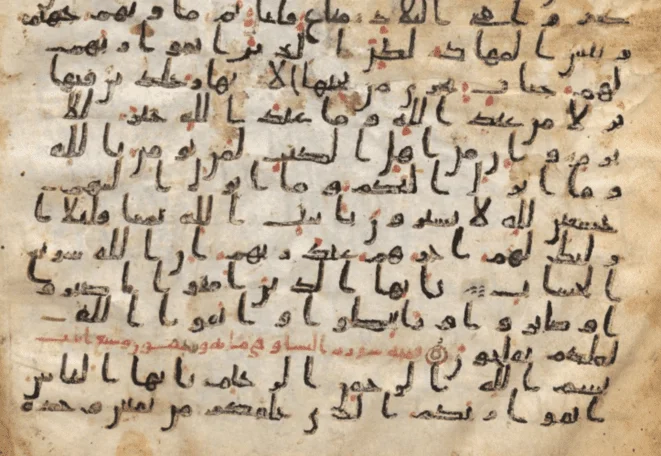 كفروا في البلد متاع قليل ثم ماويهم جهنم
وبئس المهاد لكن الذين اتقوا ربهم
لهم جنات تجري من تحتها الانهار خلدين فيها
نزلا من عند الله وما عند الله خير للا
برار وان من اهل الكتب لمن يومن بالله
وما انزل اليكم وما انزل اليهم
خشعين لله لا يشترون بايت الله ثمنا قليلا ا
ولئك لهم اجرهم عند ربهم ان الله سريع
الحساب يايها الذين امنوا اصبرو
ا وصابروا ورابطوا واتقوا الله
لعلكم تفلحون سورة النساء وهي مائة وسبعون
بسم الله الرحمن الرحيم يايها الناس
اتقوا ربكم الذي خلقكم من نفس وحدة